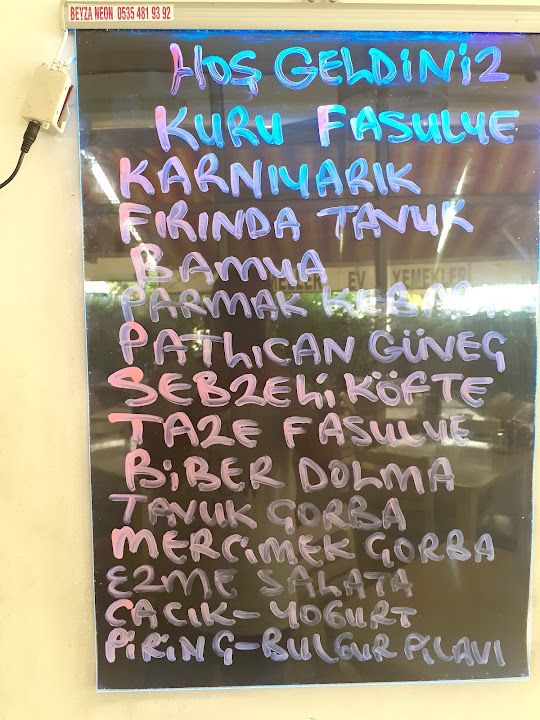 BEYZA NEON 0535 481 93 92
HOŞ GELDİNİZ
KURU FASULYE
KARNIYARIK
FIRINDA TAVUK
BAMYA
EV YEMEKLERİ
PARMAK KEBABI
PATLICAN GÜVEÇ
SEBZELİ KÖFTE
TAZE FASULYE
BİBER DOLMA
TAVUK ÇORBA
MERCİMEK ÇORBA
EZME SALATA
CACIK-YOGURT
PİRİNÇ-BULGUR PİLAVI